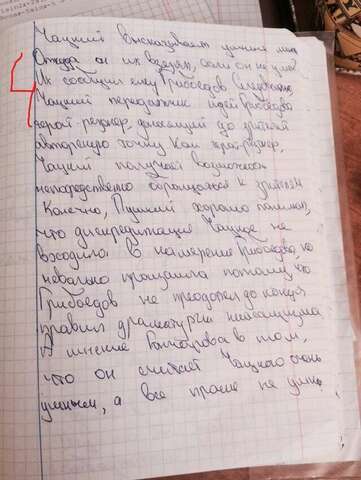 Чацкий высказывает умные мысли
Откуда он их взял, если он не умён
Их сообщил ему Грибоедов
Чацкий передатчик идей Грибоедова
герой-резонер, доносящий до зрителей
авторскую точку Как герой-резонер,
Чацкий получает возможность
непосредственно обращаться к зрителям
Конечно, Пушкин хорошо понимал,
что дискредитация Чацкого не
входила в намерения Грибоедова, но
невольно прошла потому, что
Грибоедов не преодолел до конца
правил драматургии классицизма
А мнение Гончарова в том,
что он считает Чацкого очень
умным, а все прочие не умны